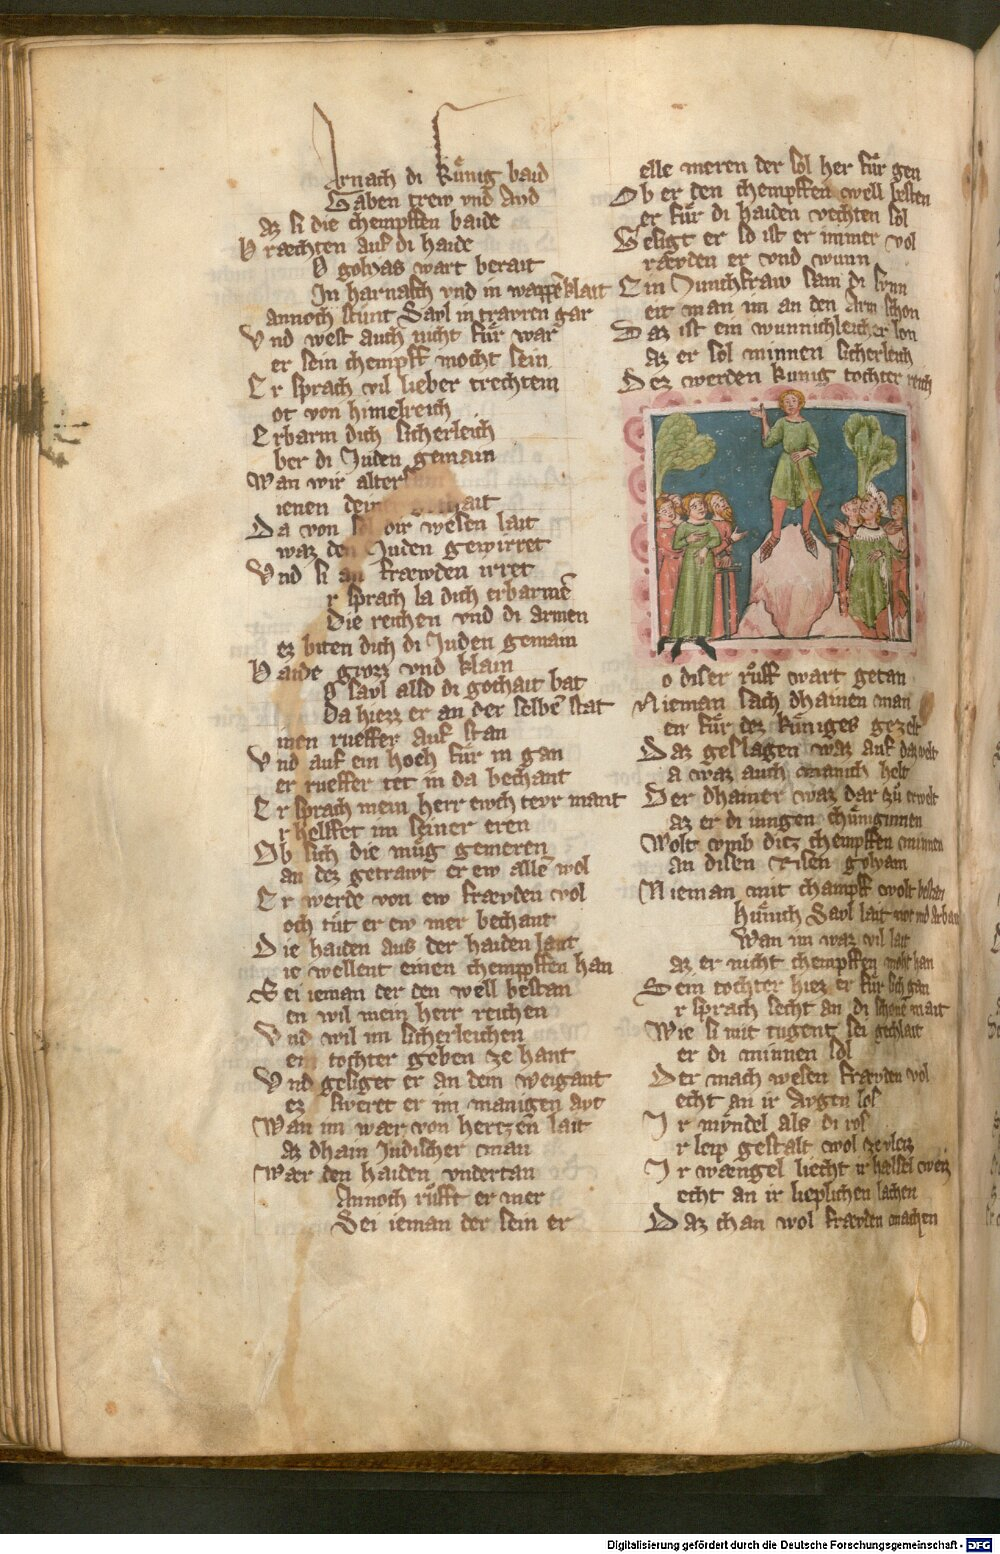 arnach di Kuͤnig baid
Gaben trew vnd Ayd
az si die chempffen baide
V ræchten auf di haide
V golyas wart berait
In harnasch vnd in wappē klait
annoch stunt Sayl in trawren gar
V nd west auch nicht fuͤr war
er sein chempff mocht sein
E r sprach vil lieber trechtein
ot von himelreich
E rbarm dich sicherleich
ber di Juden gemain
Wan wir alters
ienen dein
D a von sol wir wesen lait
waz den Juden gewirret
V nd si an fræwden irret
r sprach la dich erbarmē
Die reichen vnd di armen
ez biten dich di Juden gemain
B aide grozz vnd klain
o sayl also di gothait bat
Da hiezz er an der selbē stat
inen rueffer auf stan
V nd auf ein hoch fuͤr in gan
er rueffer tet in da bechant
E r sprach mein herr ewch tewr mant
r helffet im seiner eren
O b sich die muͤg gemeren
an dez getrawt er ew allē wol
E r werde von ew fræwden vol
och tuͤt er ew mer bechant
D ie haiden aus der haiden lant
ie wellent einen chempffen han
S ei ieman der den well bestan
en wil mein herr reichen
V nd wil im sicherleichen
ein tochter geben ze hant
V nd gesiget er an dem weigant
ez sweret er im manigen ayt
Wan im wær von hertzen lait
az dhain Judischer man
Wær den haiden vndertan
Annoch ruͤfft er mer
Sei ieman der sein er
elle meren der sol her fuͤr gen
O b er den chempffen well besten
er fuͤr di haiden vechten sol
G esigt er so ist er immer vol
ræwden er vnd wunn
E in Junchfraw sam di sunn
eit man im an den Arm schon
D az ist ein wunnichleicher lon
az er sol minnen sicherleich
D ez werden kunig tochter reich
o diser ruͤff wart getan
N ieman sach dhainen man
en fuͤr dez kuͤniges gezelt
D az geslagen waz auf daz velt
a waz auch manich helt
D er dhainer waz dar zuͤ erwelt
az er di iungen chuͤniginnen
Wolt vmb ditz chempffen minnen
an disen risen golyam
N ieman mit champff wolt bestan
kuͤnich Sayl lait not vnd arbait
Wan im waz vil lait
az er nicht chempffen moht han
S ein tochter hiez er fuͤr sich gan
r sprach secht an di schonē mait
Wie si mit tugent sei gechlait
er di minnen sol
D er mach wesen fræwden vol
echt an ir Augen los
I r muͤndel als di ros
r leip gestalt wol ze vleiz
I r wængel liecht ir hælsel weiz
echt an ir lieplichen lachen
D az chan wol fræwden machen
Digitalisierung gefördert durch die Deutsche Forschungsgemeinschaft - DFG